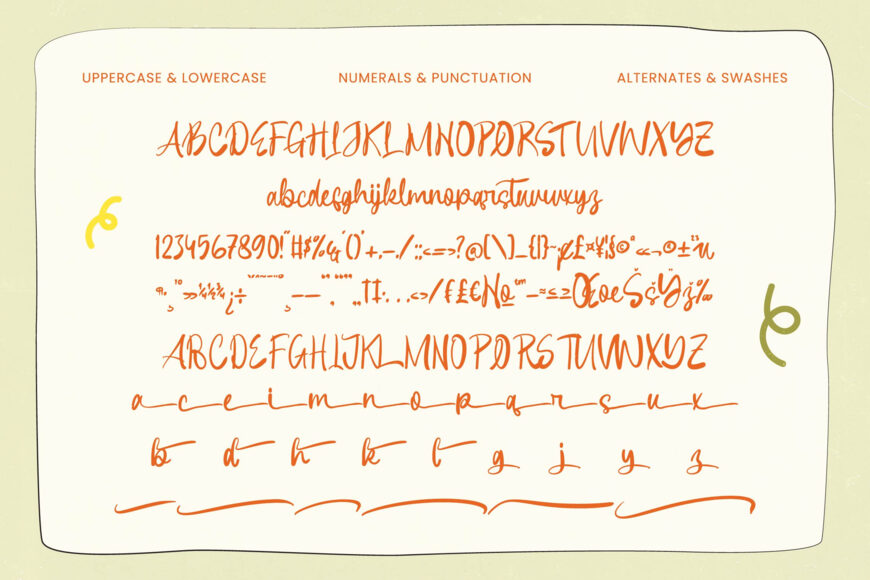 UPPERCASE & LOWERCASE NUMERALS & PUNCTUATION ALTERNATES & SWASHES
ABCDEFGHIJKLMNOPQRSTUVWXYZ
abcdefghijklmnopqrstuvwxyz
1234567890!"#$%&'()*+,-./:;<=>?@[\]_{|}~¢£¤¥¦§©ª«¬®±²³µ
¶¹º»¼½¾¿÷
ABCDEFGHIJKLMNOPQRSTUVWXYZ
a c e i m n o p q r s u x
b d h k l g j y z